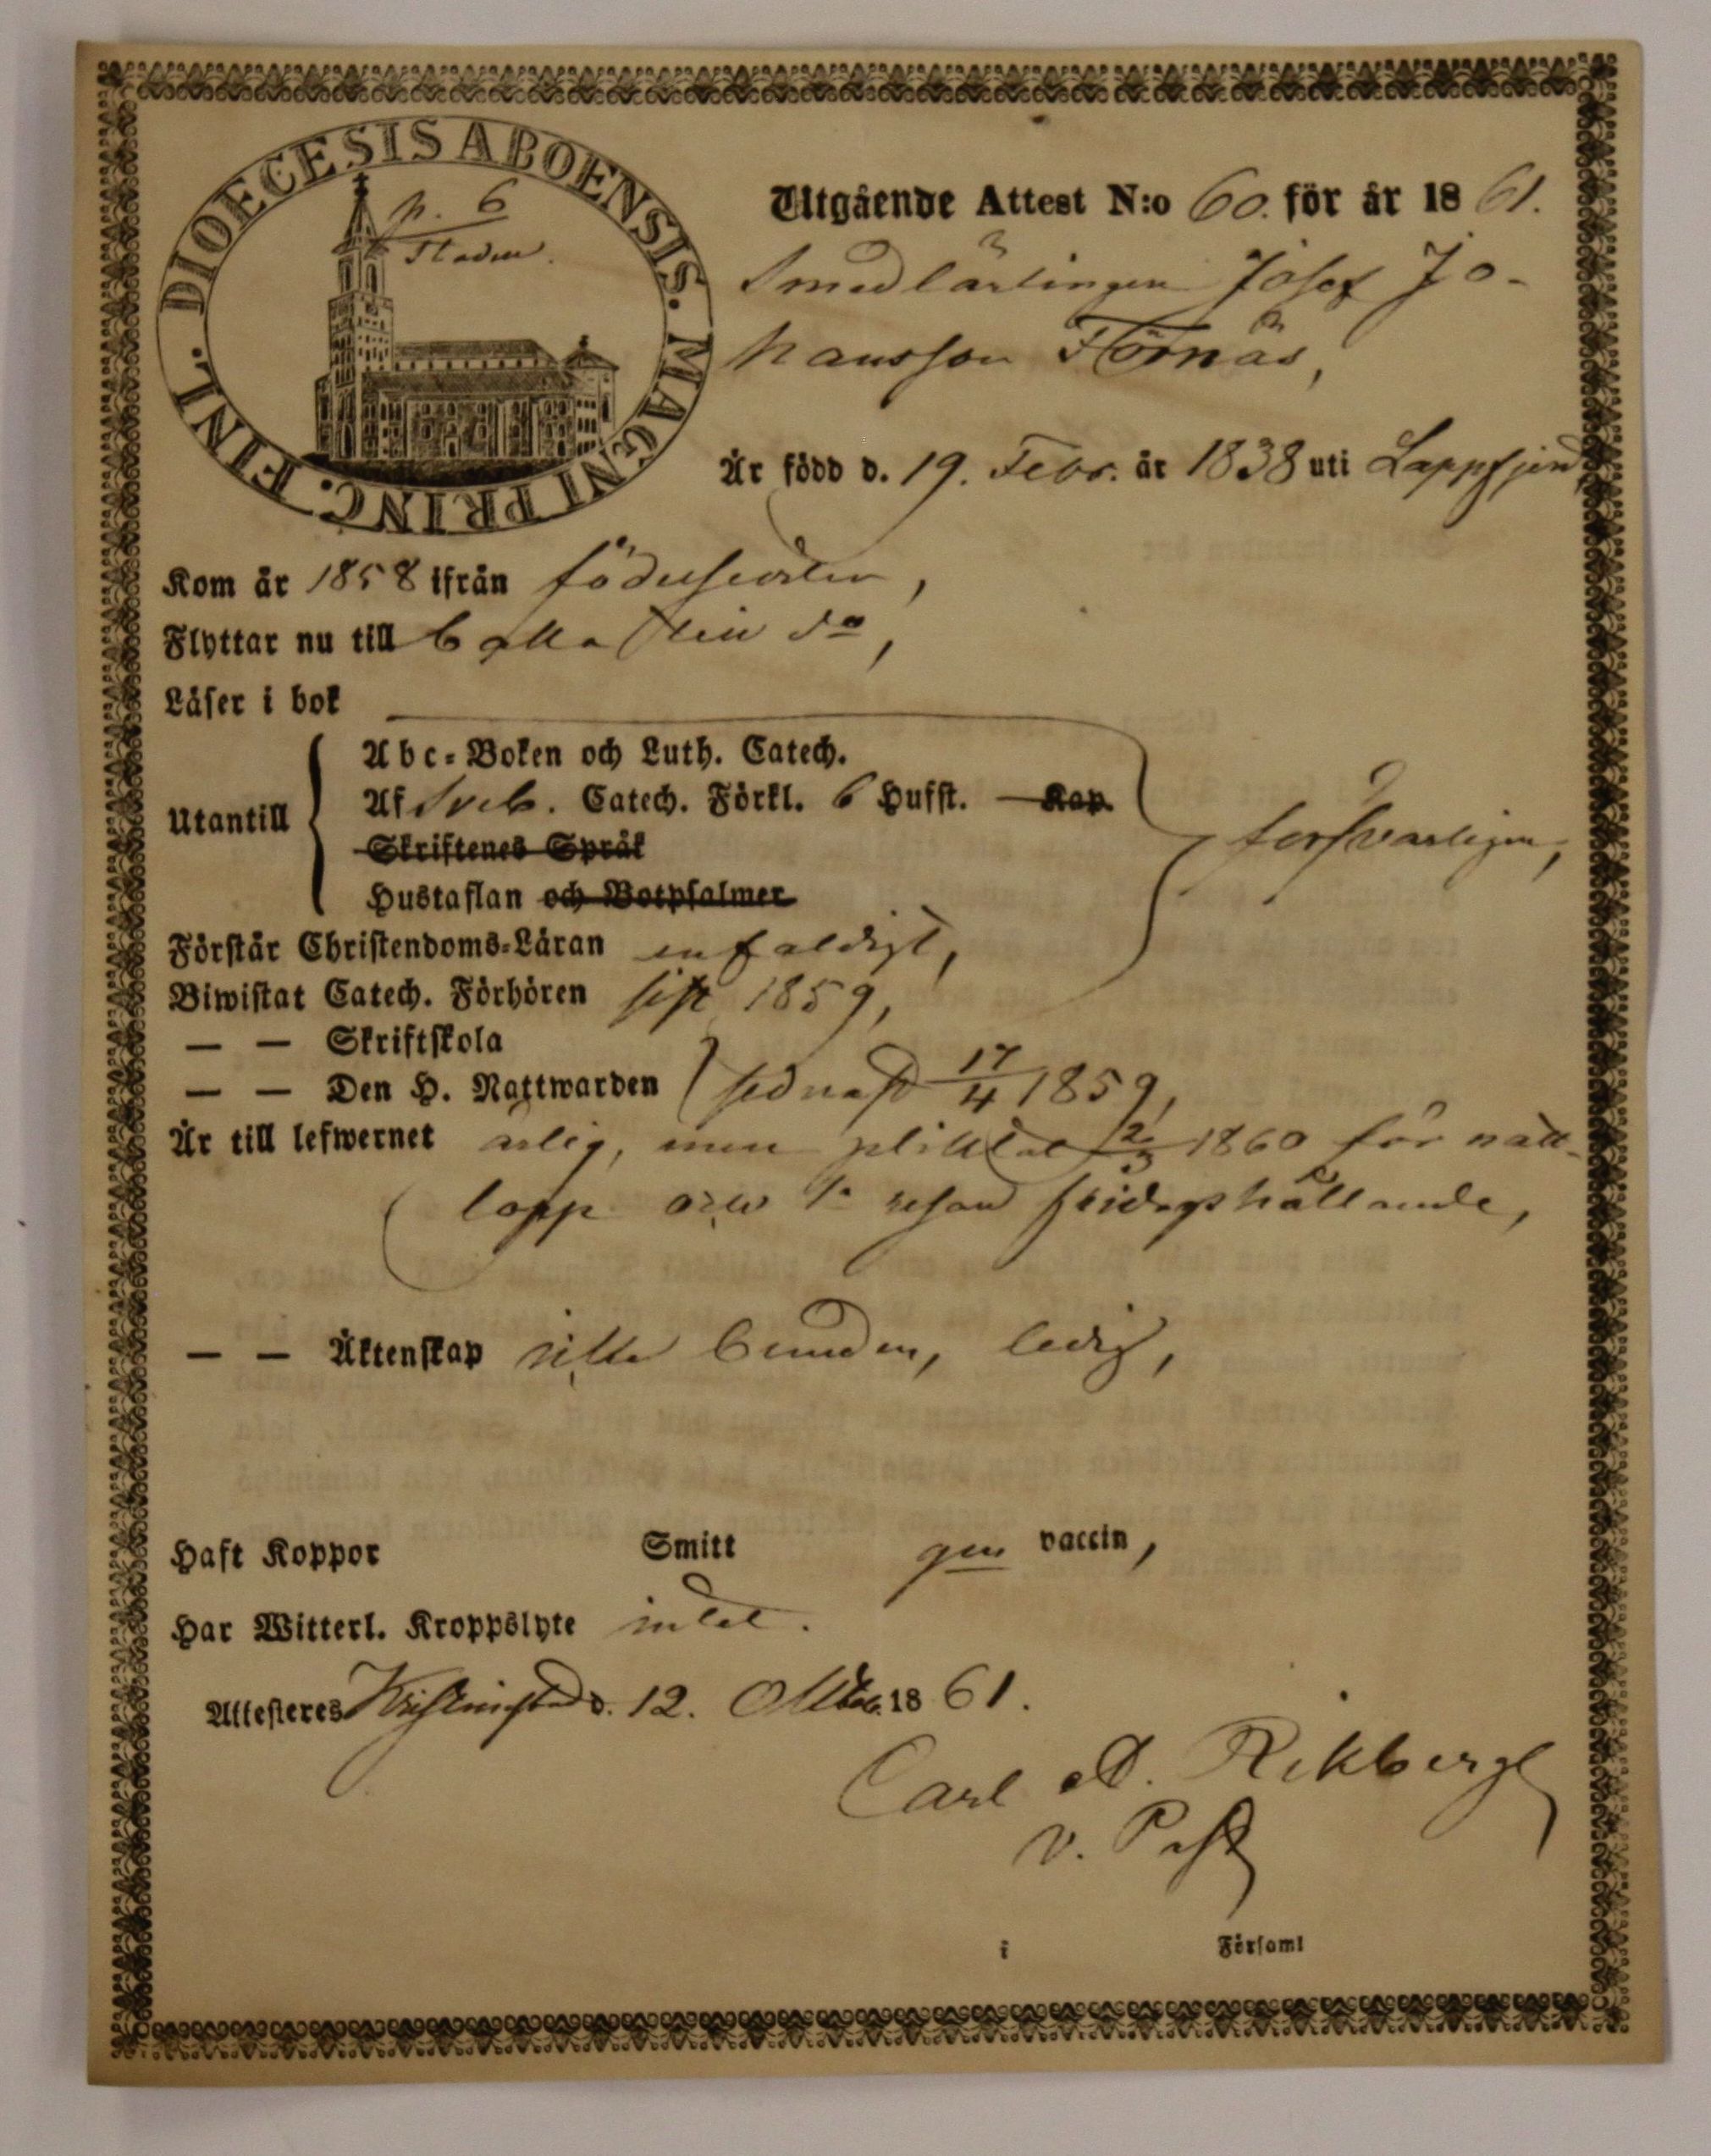 DIOECESIS ABOENSIS. MAGNI PRINC. FINL.
p. 6
Staden.
Utgående Attest N:o 60. för år 1861.
Smedlärlingen Josef Jo-
hansson Törnäs,
Är född d. 19. Febr. år 1838 uti Lappfjerd,
Kom år 1858 ifrån födelseorten,
Flyttar nu till tillbaka
Läser i bok
Abc-Boken och Luth. Catech.
Utantill
Af Sveb. Catech. Förkl. 6 Hufst. — Kap.
försvarligen,
Skriftenes Språk
Hustaflan och Botpsalmer
Förstår Christendoms-Läran enfaldigt,
Biwistat Catech. Förhören sist 1859,
— — Skriftskola
— — Den H. Nattwarden sednast 17/4 1859,
Är till lefwernet ärlig, men pliktat 1860 för natt-
lopp resan fridagshållande,
— — Äktenskap icke bunden, ledig,
Haft Koppor Smitt gm vaccin,
Har Witterl. Kroppslyte intet.
Attesteres Kristinestad d. 12. Oktob. 1861.
Carl A. Rikberg
v. Past
i Församl